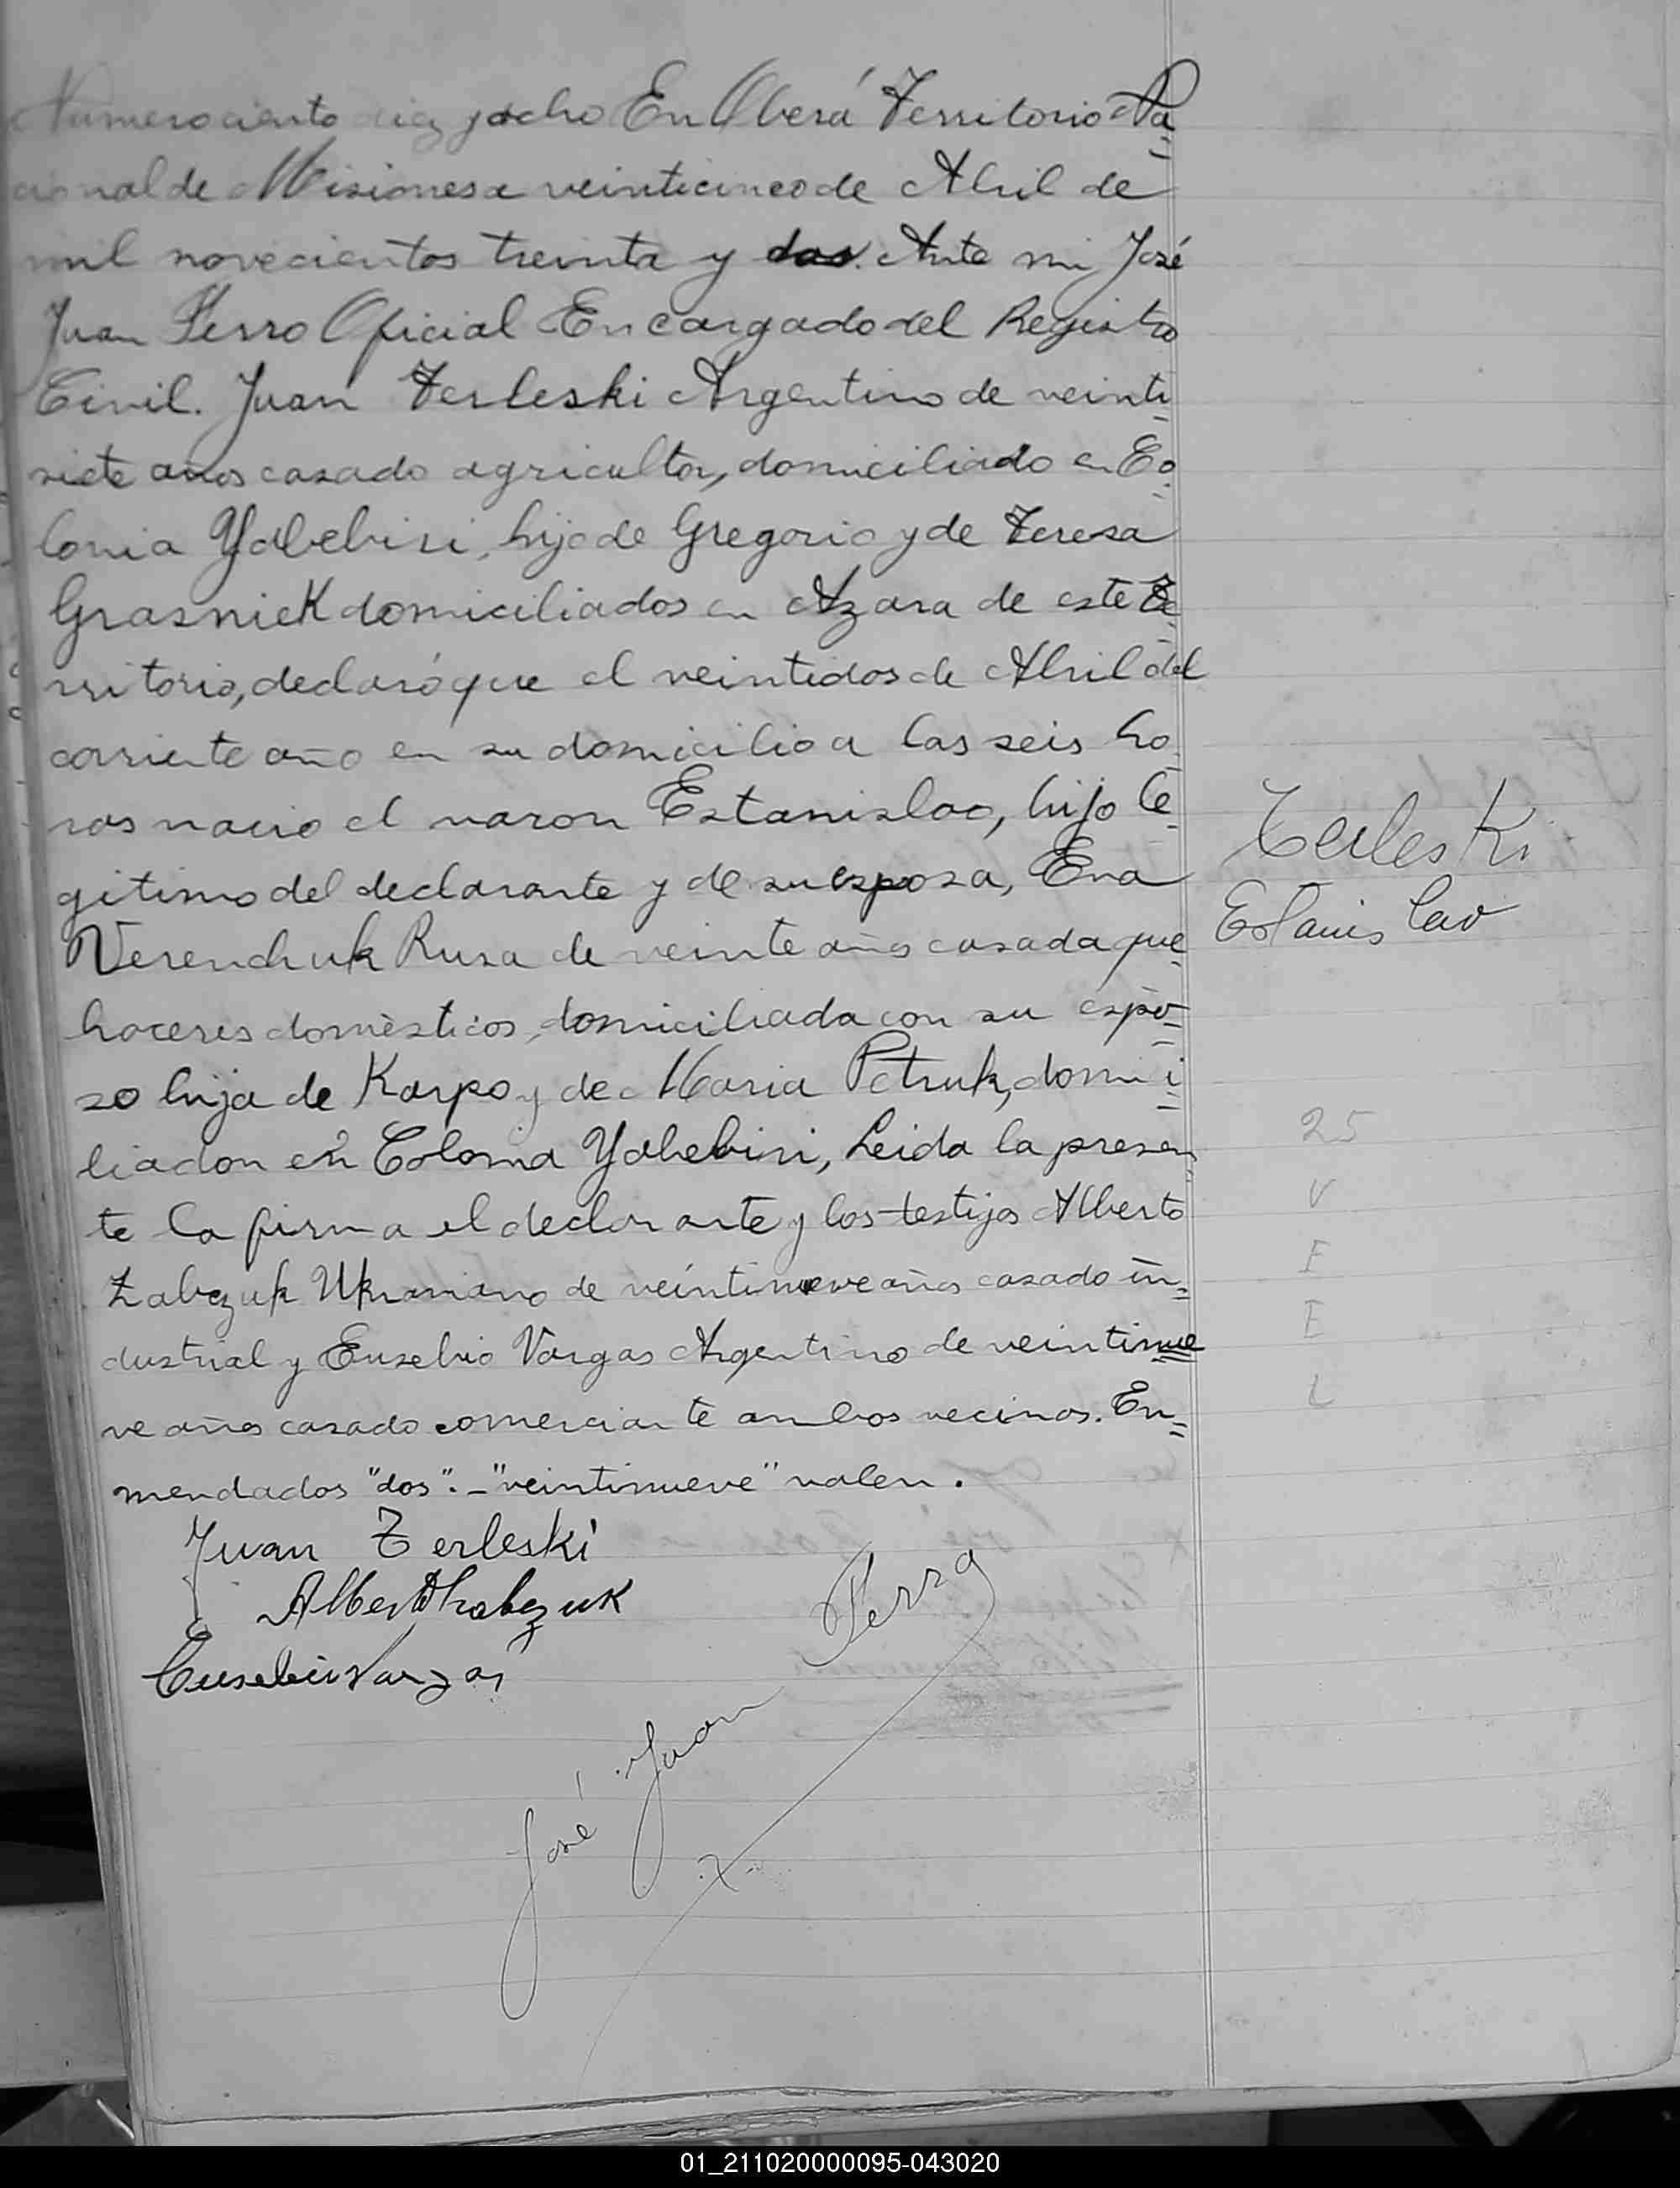 Numero ciento diez y ocho En Oberá Territorio Na=
cional de Misiones a veinticinco de Abril de
mil novecientos treinta y dos. Ante mi José
Juan Perro Oficial Encargado del Registro
Civil. Juan Terleski Argentino de veinti=
siete años casado agricultor, domiciliado en Co=
lonia Yabebiri, hijo de Gregorio y de Teresa
Grasniek domiciliados en Azara de este Te=
rritorio, declaró que el veintidos de Abril del
corriente año en su domicilio a las seis ho=
ras nacio el varon Estanislao, hijo le=
gitimo del declarante y de su esposa, Eva
Verenchuk Rusa de veinte años casada que=
haceres domèsticos, domiciliada con su espo=
so hija de Karpo y de Maria Petruk, domi i=
liadon en Colonia Yabebiri, Leida la presen=
te la firma el declarante y los testigos Alberto
Zabczuk Ukraniano de veintinueve años casado in=
dustrial y Eusebio Vargas Argentino de veintinue=
ve años casado comerciante ambos vecinos. En=
mendados "dos".-"veintinueve" valen.
Juan Terleski
Eusebio Vargas
José Juan Perro
Terleski
Estanislao
25
V
F
E
L
01_211020000095-043020